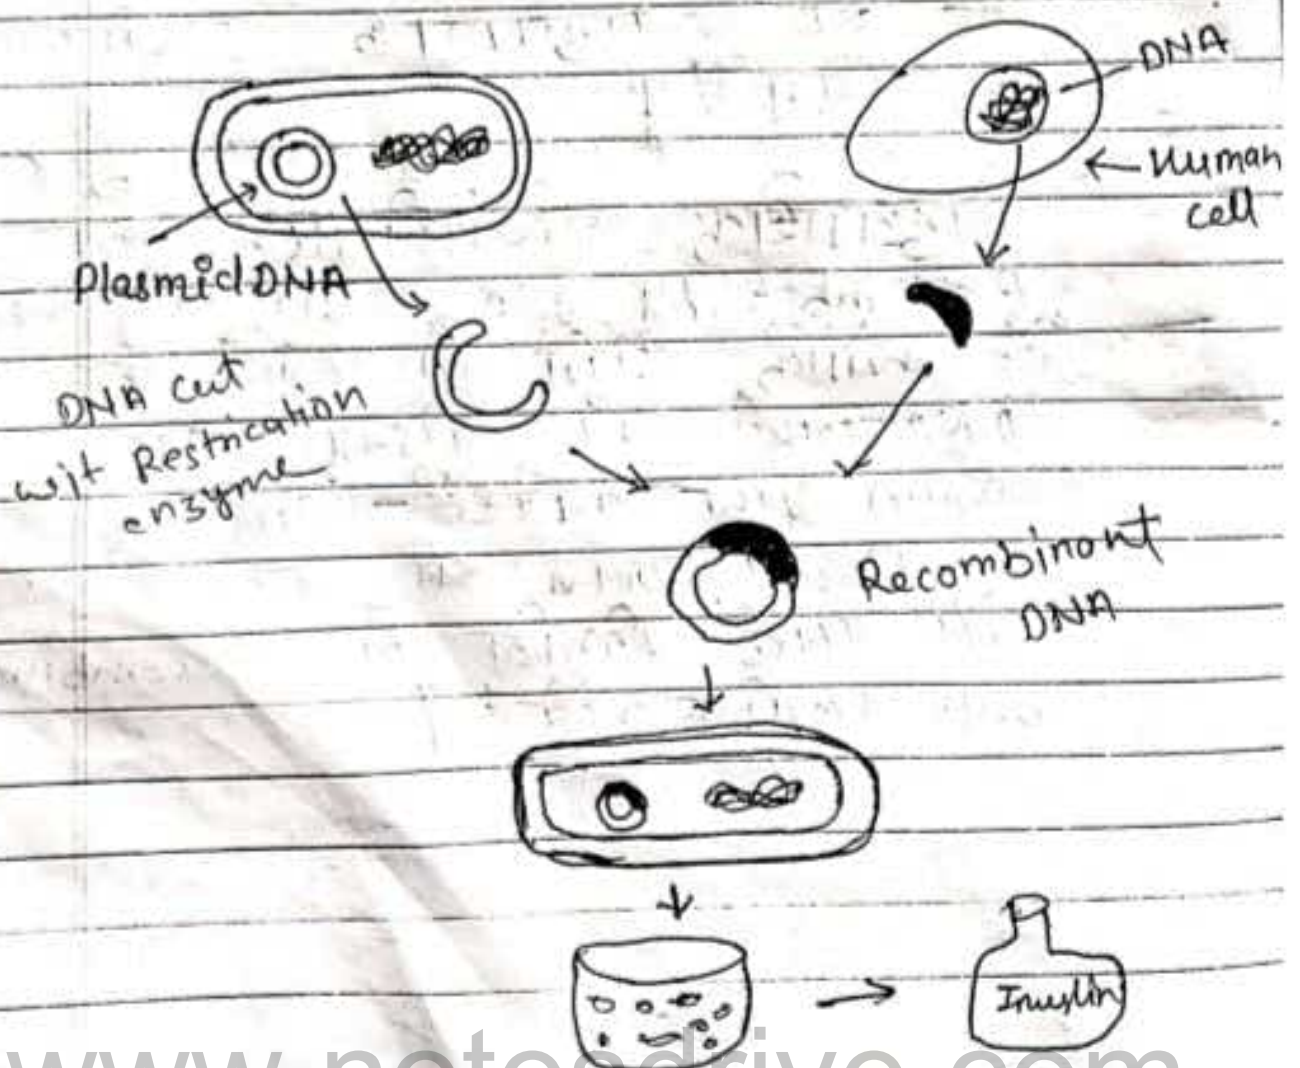 DNA
Human
cell
Plasmid DNA
DNA cut
wit Restrication
enzyme
Recombinant
DNA
Inuslin
www.notesdrive.com